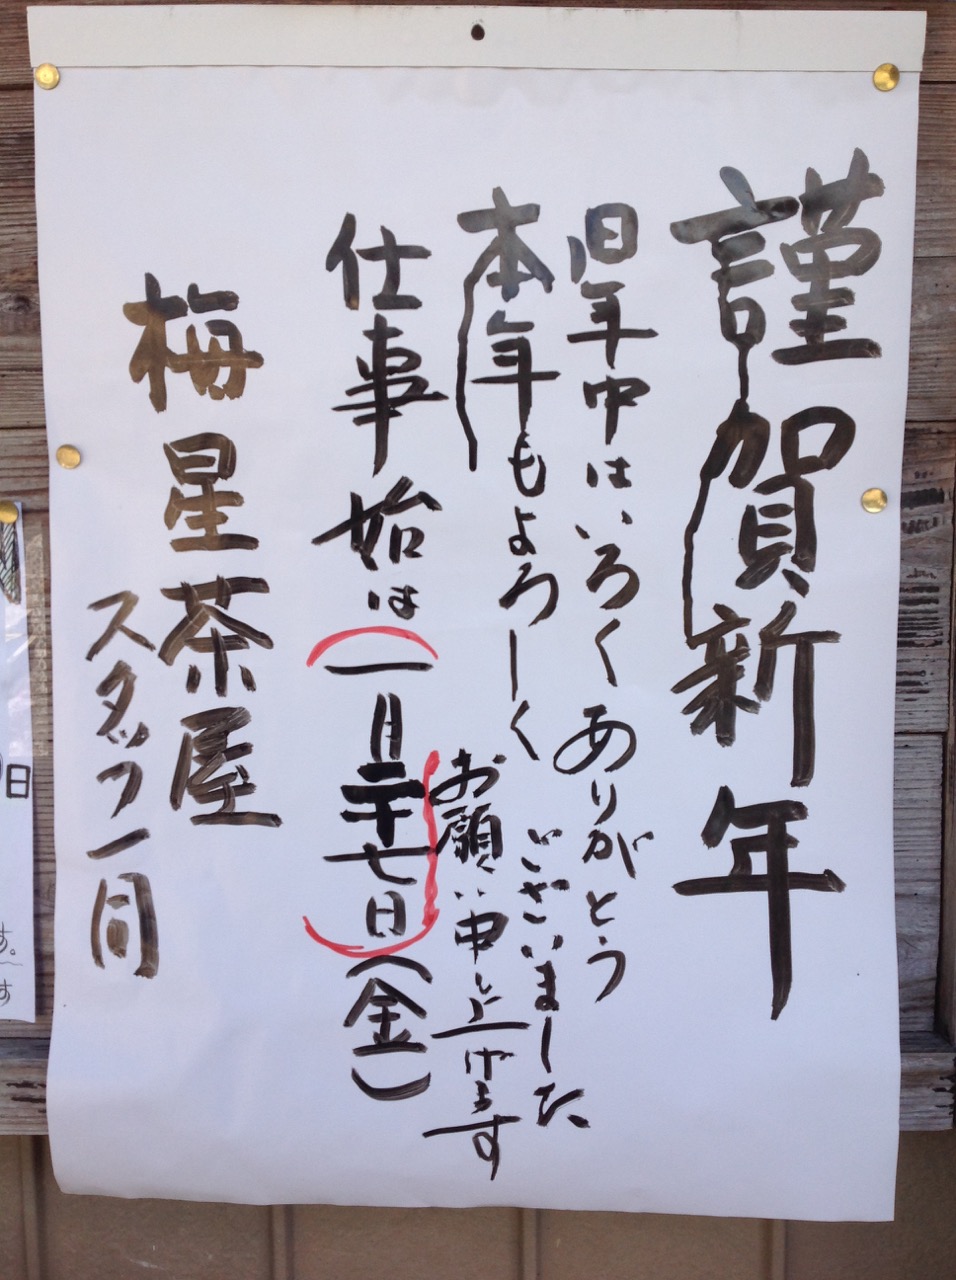 謹賀新年
旧年中はいろくありがとう
ございました
本年もよろしく
お願い申し上げます
仕事始は一月二十七日(金)
梅星茶屋
スタッフ一同
日
す。
す